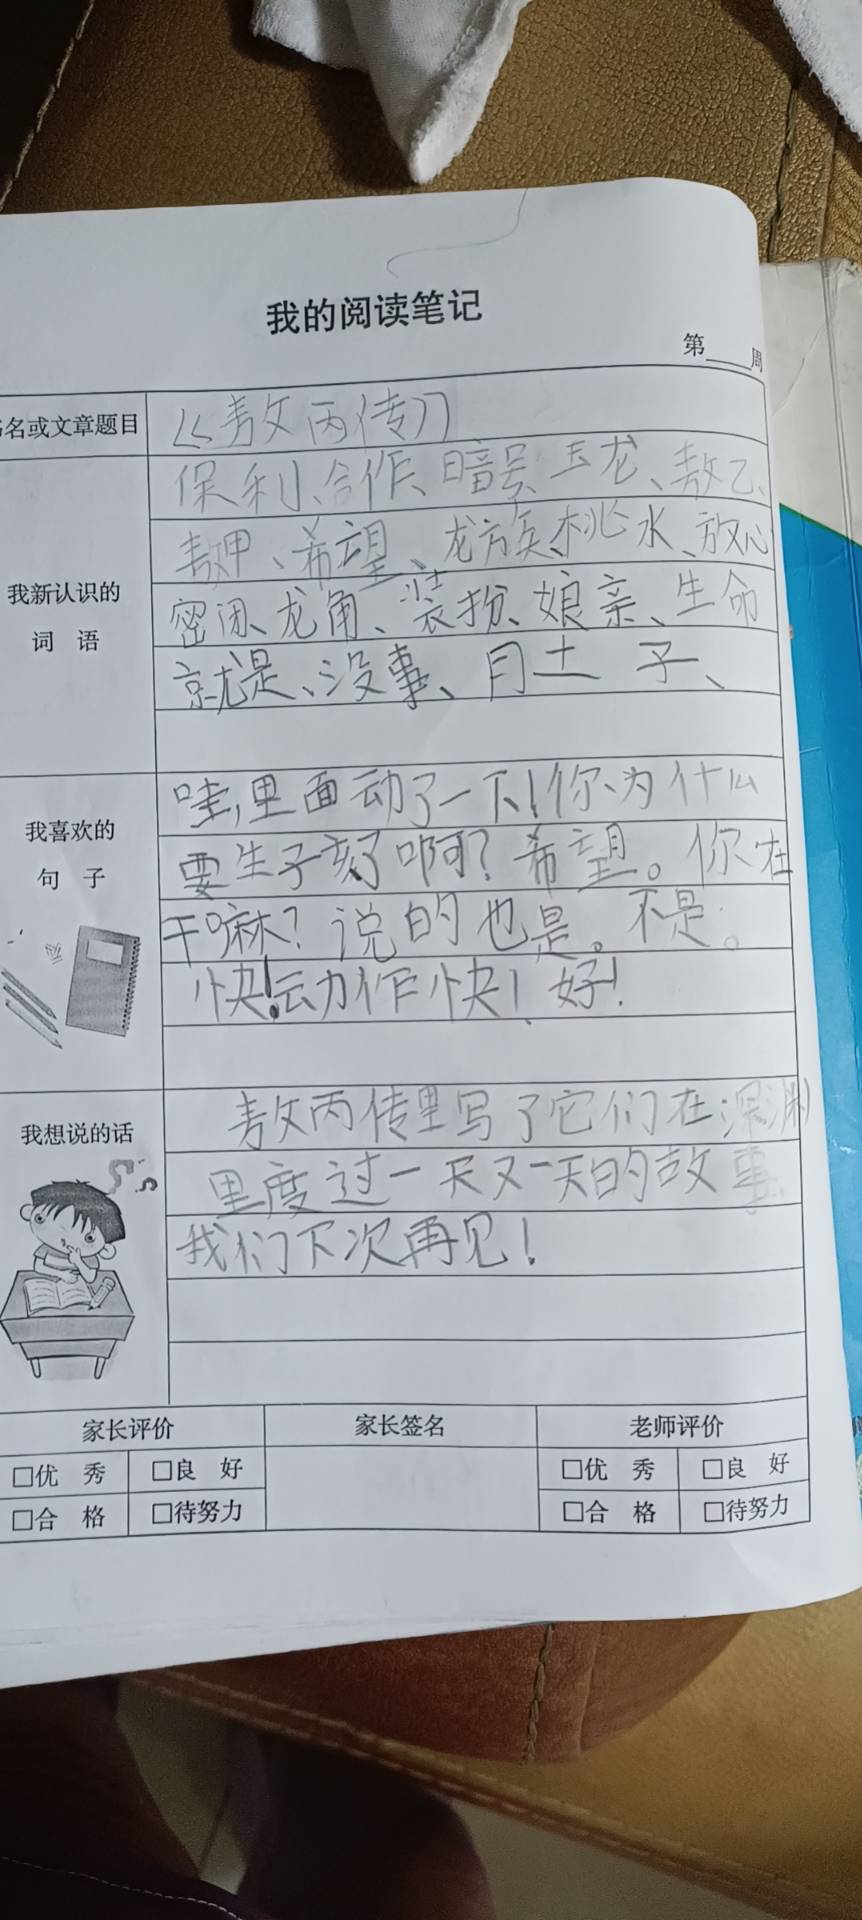 我的阅读笔记
第____周
名或文章题目
《敖丙传》
我新认识的
词 语
保利、合作、暗号、玉龙、敖乙、
敖甲、希望、龙族、桃水、放心
密闭、龙角、装扮、娘亲、生命
就是、没事、肚 子、
我喜欢的
句 子
哇,里面动了一下!你为什么
要生子刻了啊?希望。你在
干嘛?说的也是。不是。
快!动作快!好!
我想说的话
敖丙传里写了它们在深渊
里度过一天又一天的故事
我们下次再见!
家长评价 家长签名 老师评价
□优 秀 □良 好 □优 秀 □良 好
□合 格 □待努力 □合 格 □待努力